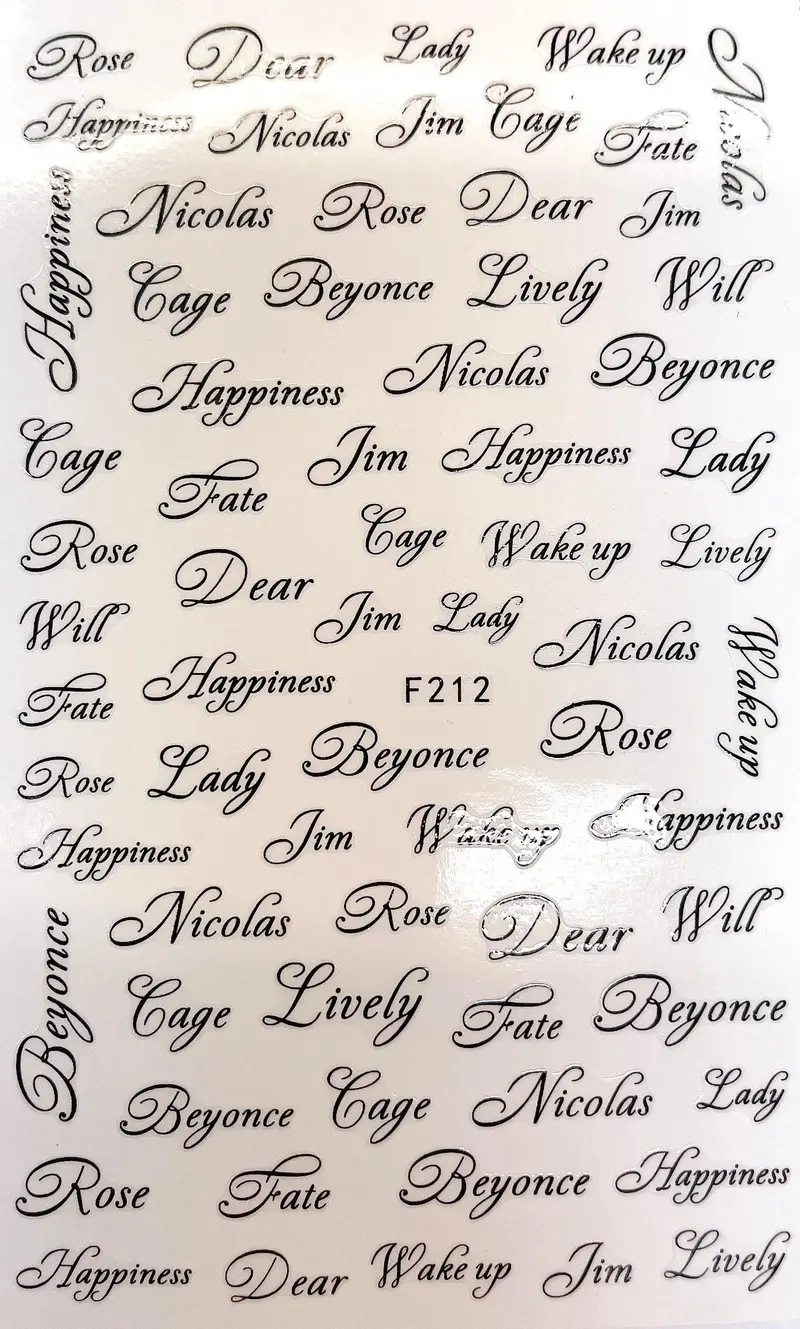 Rose Dear Lady Wake up
Nicolas
Happiness Nicolas Jim Cage Fate
Happiness
Nicolas Rose Dear Jim
Cage Beyonce Lively Will
Happiness Nicolas Beyonce
Cage Jim Happiness Lady
Fate
Rose Cage Wake up Lively
Dear
Will Jim Lady Nicolas
Wake up
Fate Happiness F212
Rose
Rose Lady Beyonce
Happiness Jim Wake up Happiness
Beyonce
Nicolas Rose Dear Will
Cage Lively Fate Beyonce
Beyonce Cage Nicolas Lady
Rose Fate Beyonce Happiness
Happiness Dear Wake up Jim Lively